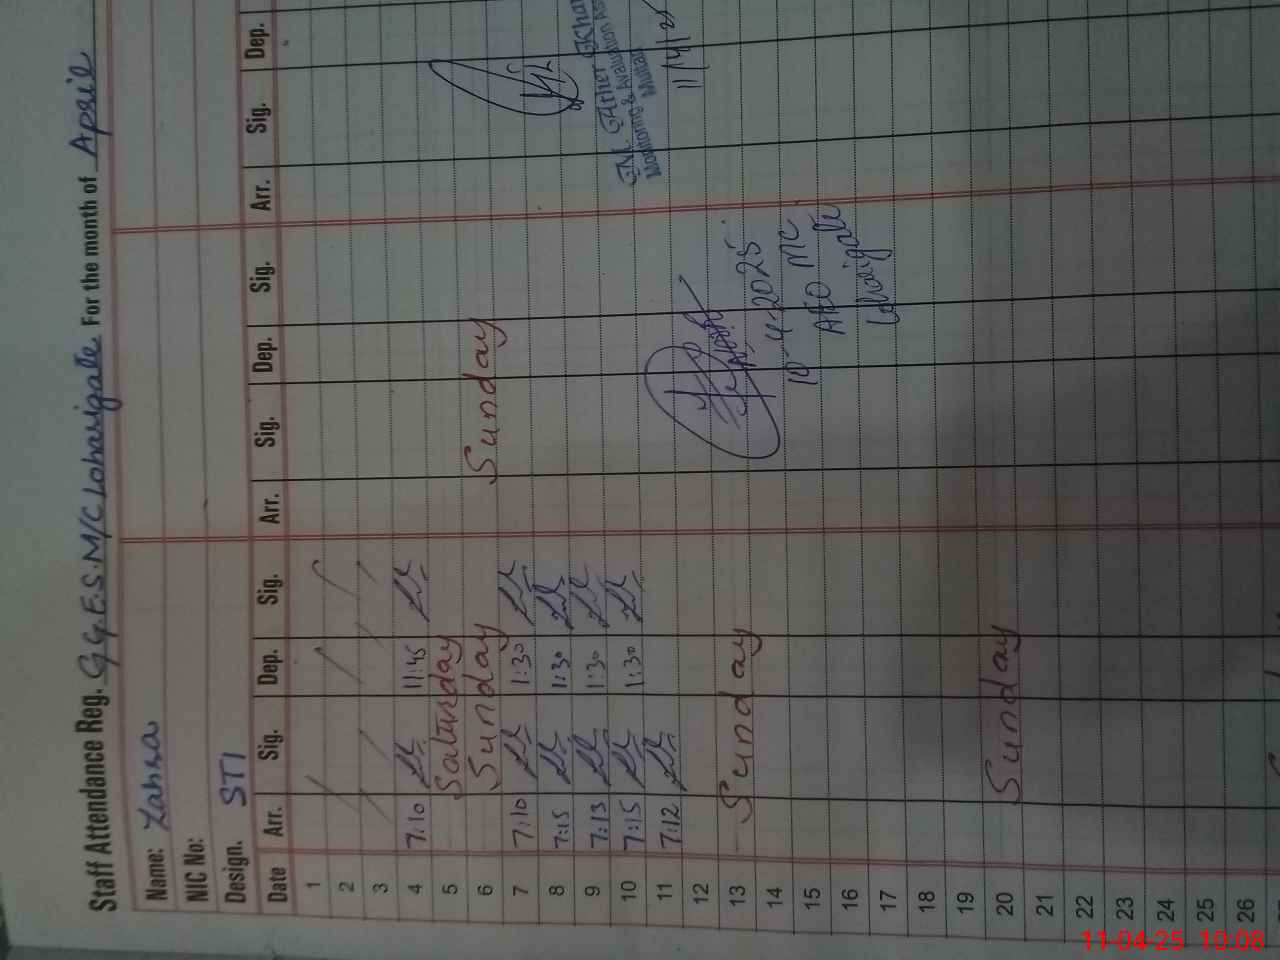 Staff Attendance Reg. G.G.E.S. M/C Loharigate For the month of April
Name: Zahra
NIC No:
Design. STI
Date Arr. Sig. Dep. Sig. Arr. Sig. Dep. Sig. Arr. Sig. Dep.
1
2
3
4 7:10 11:45
5 Saturday
6 Sunday Sunday
7 7:10 1:30
8 7:15 1:30
9 7:13 1:30
10 7:15 1:30
11 7:12
12
13 Sunday
14
15
16
17
18
19
20 Sunday
21
22
23
24
25
26
10-4-2025
AEO MC
Loharigate
Monitoring & Evaluation
Multan
11/4/25
11-04-25 10:08